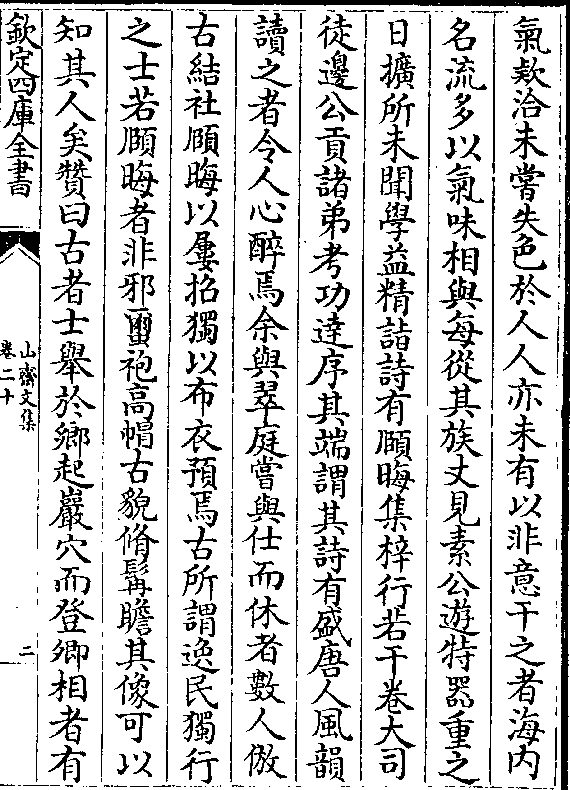 氣欵洽未嘗失色於人人亦未有以非意干之者海内
名流多以氣味相與每從其族丈見素公遊特器重之
日擴所未聞學益精詣詩有頥晦集梓行若干卷大司
徒邊公貢諸弟考功逹序其端謂其詩有盛唐人風韻
讀之者令人心醉焉余與翠庭嘗與仕而休者數人倣
古結社頥晦以屢招獨以布衣預焉古所謂逸民獨行
之士若頥晦者非邪璽袍高帽古貌脩髯瞻其像可以
知其人矣贊曰古者士舉於鄉起巖穴而登卿相者有
欽定四庫全書
山齋文集
卷二十
二